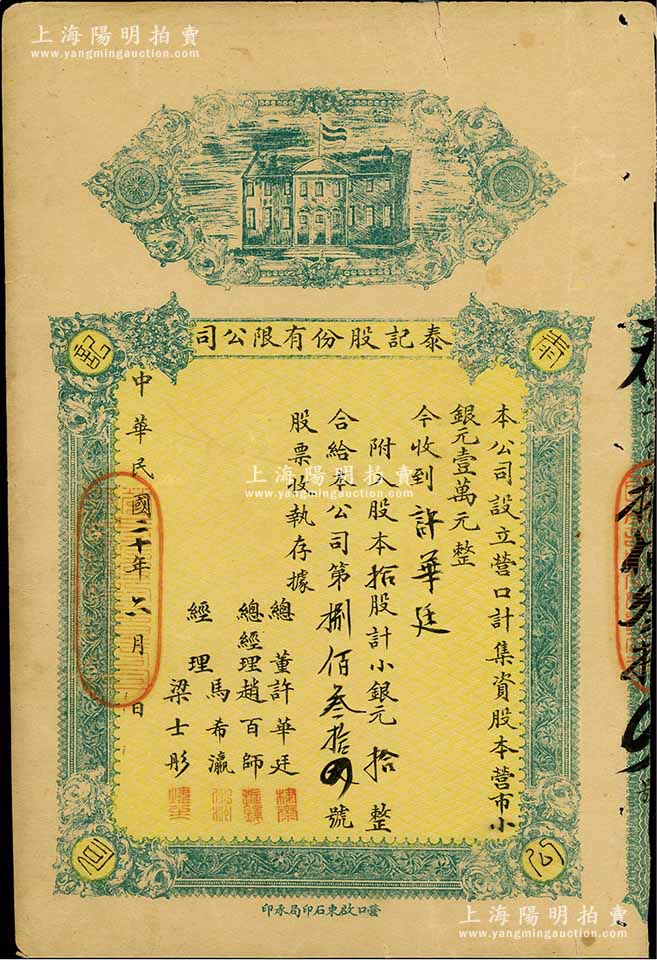 上海陽明拍賣
www.yangmingauction.com
上海陽明拍賣
www.yangmingauction.com
泰記股份有限公司
泰
記
本公司設立營口計集資股本營市小
銀元壹萬元整
今收到許華廷
附入股本拾股計小銀元拾整
合給本公司第捌佰叁拾四號
股票收執存據
總董許華廷
總經理趙百師
馬希瀛
經理
梁士彤
中華民國二十年六月 日
上海陽明拍賣
www.yangmingauction.com
公
司
營口啟東石印局承印
上海陽明拍賣
www.yangmingauction.com